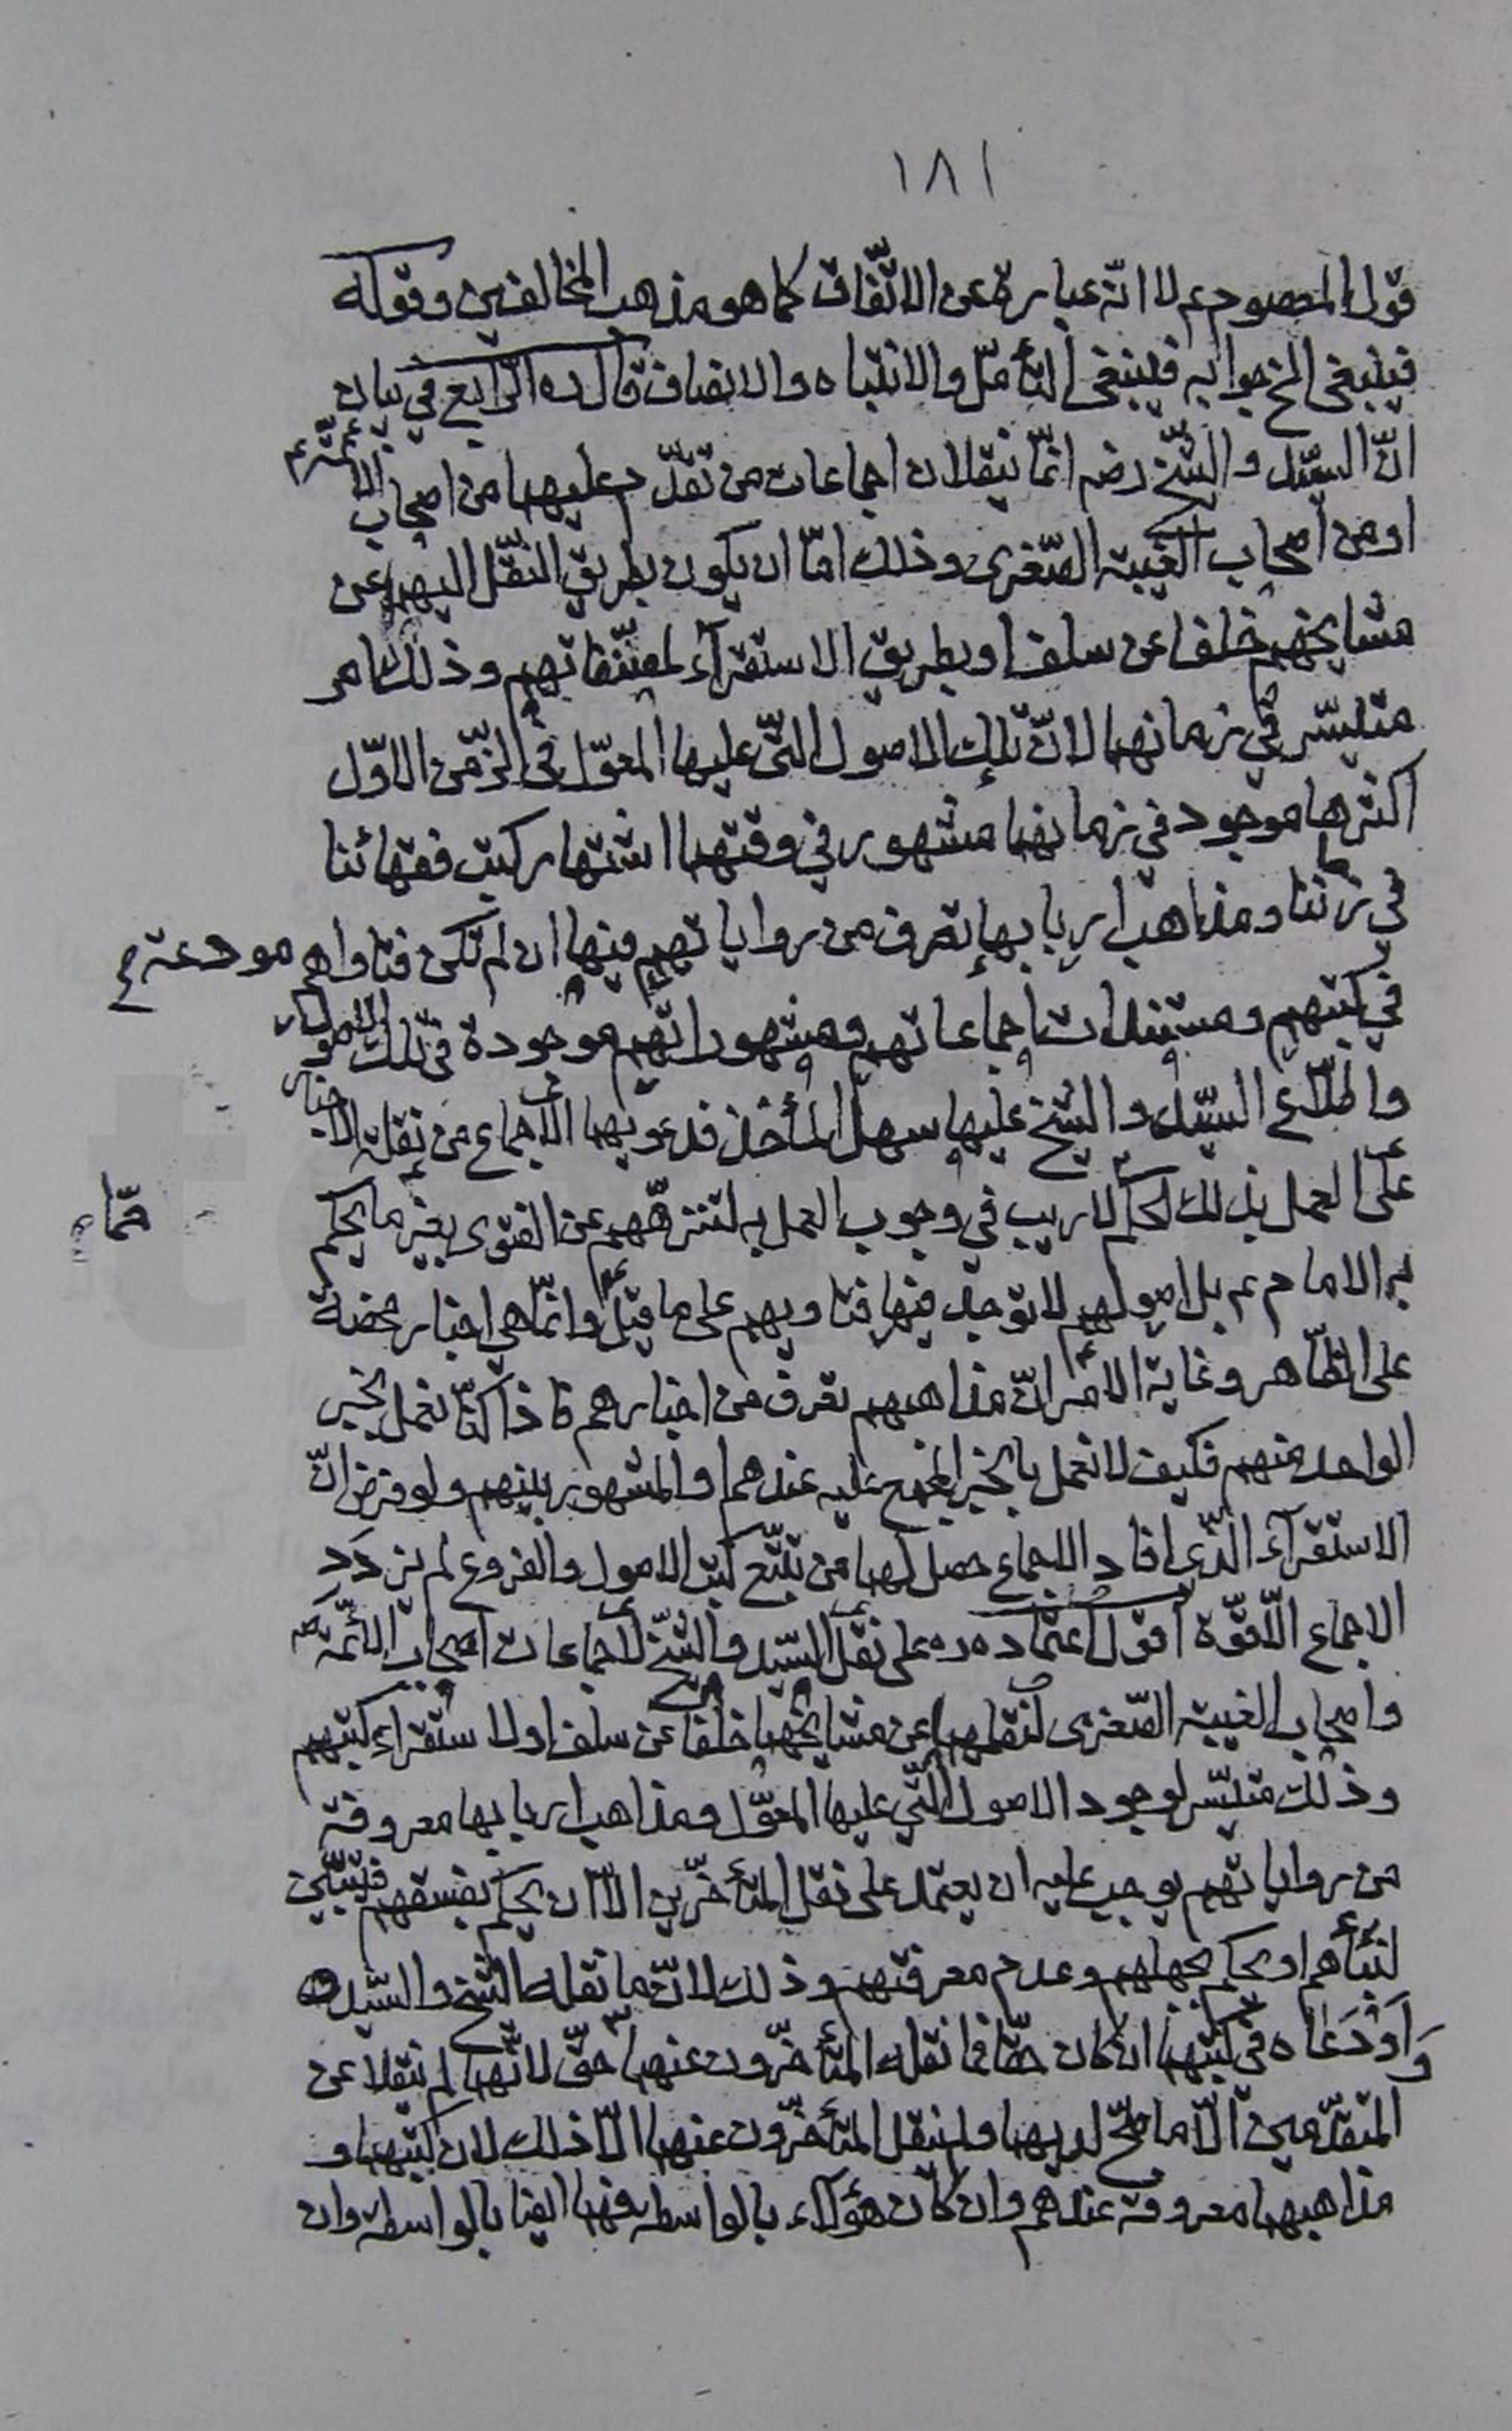 ١٨١
قول المعصوم عم لا انّه عبارة عن الاتّفاق كما هو مذهب المخالفين وقوله
فينبغى الخ جوابه فينبغى التأمّل والانتباه والانصاف قال ره الرّابع في بيان
انّ السيّد والشّيخ رضه انّما ينقلان اجماعات من تقدّم عليهما من اصحاب الائمّة عم
او من اصحاب الغيبة الصّغرى وذلك امّا ان يكون بطريق النّقل اليهما عن
مشايخهم خلفا عن سلف او بطريق الاستقرآء لمصنّفاتهم وذلك امر
متيسّر في زمانهما لانّ تلك الاصول الّتى عليها المعوّل فى الزّمن الاوّل
اكثرها موجود في زمانهما مشهور في وقتهما اشتهار كتب فقهائنا
في زماننا ومذاهب اربابها تعرف من رواياتهم فيها ان لم تكن فتاواهم مودعة
في كتبهم ومستندات اجماعاتهم ومشهوراتهم موجودة في تلك الاصول
واطّلاع السيّد والشّيخ عليها سهل المأخذ فدعويهما الاجماع من نقلة الاخبار
على العمل بذلك الحكم لا ريب في وجوب العمل به لتنزّههم عن الفتوى بغير ما يحكم
به الامام عم بل اصولهم لا توجد فيها فتاويهم على ما قيل وانّما هي اخبار محضة
على الظّاهر وغاية الامر انّ مذاهبهم تعرف من اخبارهم فاذا كنّا نعمل بخبر
الواحد منهم فكيف لا نعمل بالخبر المجمع عليه عندهم او المشهور بينهم ولو فرض انّ
الاستقرآء الّذى افاد الاجماع حصل لهما من تتبّع كتب الاصول والفروع لم يزدد
الاجماع الّا قوّة اقول اعتماده ره على نقل السّيد والشّيخ لاجماعات اصحاب الائمّة
واصحاب الغيبة الصّغرى لنقلهما عن مشايخهما خلفا عن سلف او لاستقراء كتبهم
وذلك متيسّر لوجود الاصول الّتي عليها المعوّل ومذاهب اربابها معروفة
من رواياتهم يوجب عليه ان يعتمد على نقل المتأخّرين الّا ان يحكم بفسقهم فيتبيّن
لنبأهم او يحكم بجهلهم وعدم معرفتهم وذلك لانّ ما نقله الشّيخ والسّيد
وَاَوْدَعَاه في كتبهما ان كان حقّا فما نقله المتأخّرون عنهما حقّ لانّهما لم ينقلا عن
المتقدّمين الّا ما صحّ لديهما ولم ينقل المتأخّرون عنهما الّا ذلك لان كتبهما و
مذاهبهما معروفة عندهم وان كان هؤلاء بالواسطه فهما ايضا بالواسطه وان